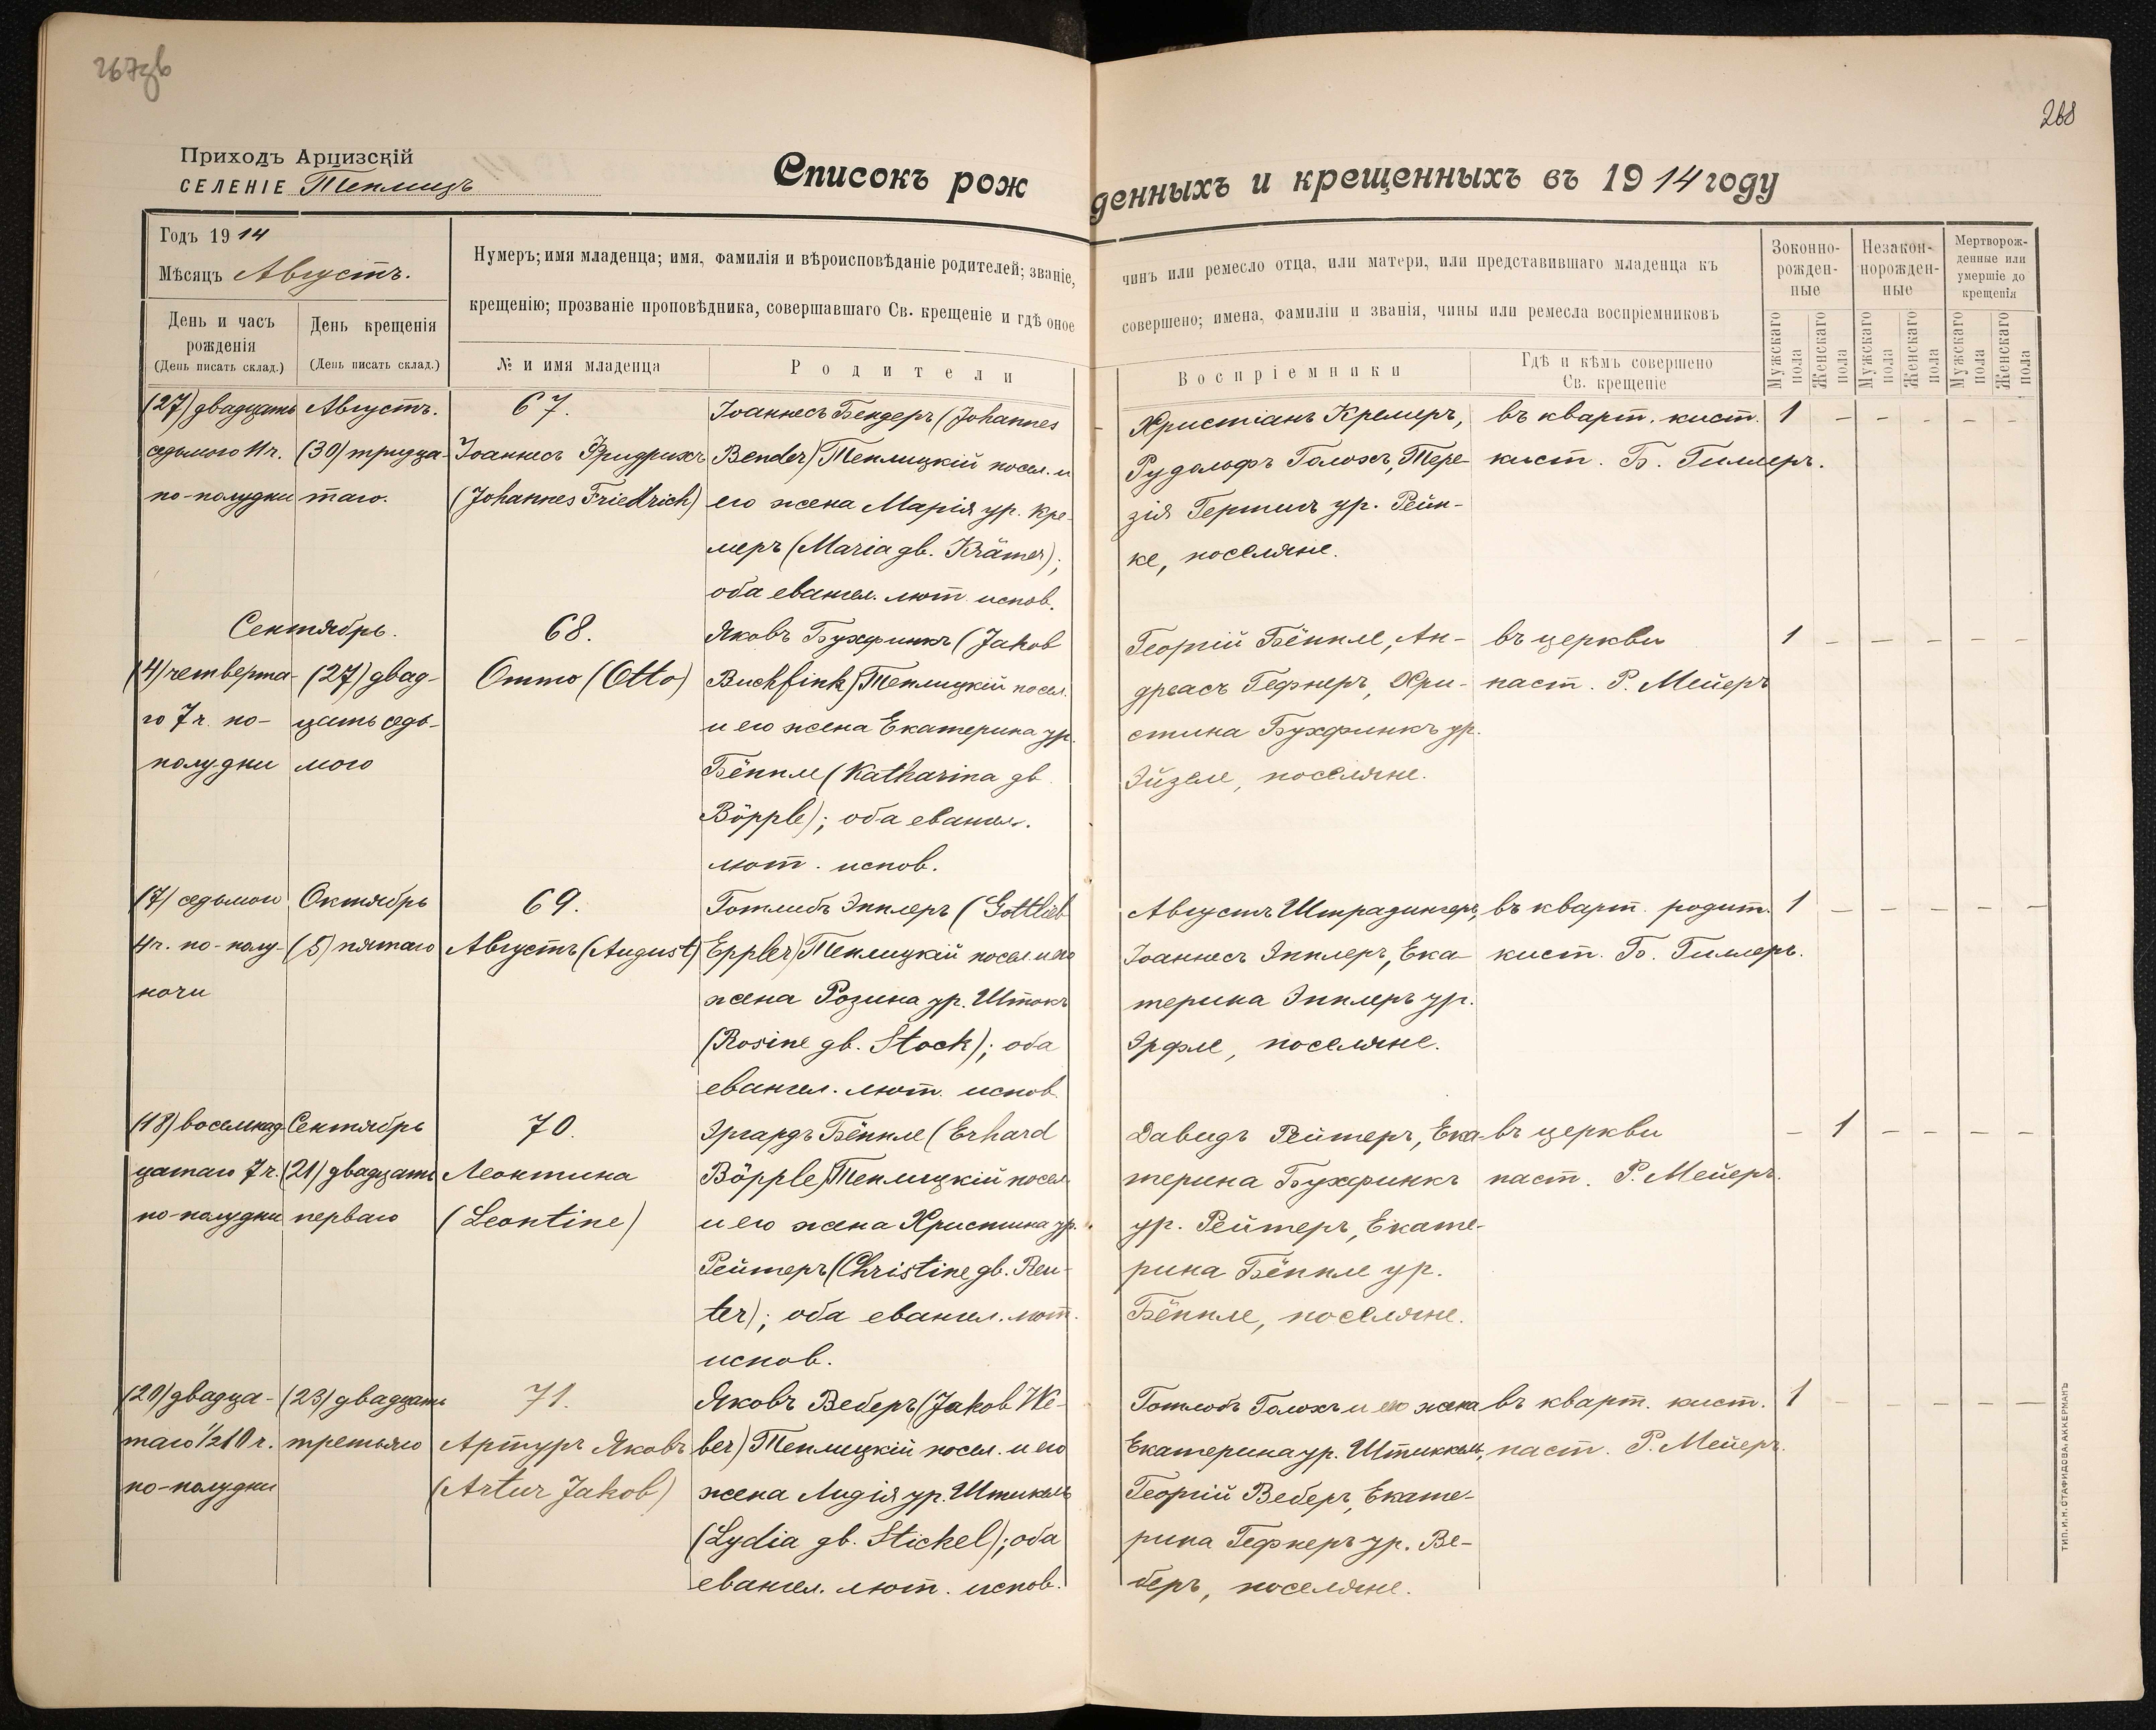 267об
268
Приходъ Арцизскій
СЕЛЕНІЕ Теплицъ
Списокъ рожденныхъ и крещенныхъ въ 1914 году
Годъ 1914
Мѣсяцъ Августъ.
День и часъ рожденія
(День писать склад.)
День крещенія
(День писать склад.)
Нумеръ; имя младенца; имя, фамилія и вѣроисповѣданіе родителей; званіе, чинъ или ремесло отца, или матери, или представившаго младенца къ
крещенію; прозваніе проповѣдника, совершавшаго Св. крещеніе и гдѣ оное совершено; имена, фамиліи и званія, чины или ремесла воспріемниковъ
№ и имя младенца
Родители
Воспріемники
Гдѣ и кѣмъ совершено
Св. крещеніе
Зоконно-
рожден-
ные
Незакон-
норожден-
ные
Мертворож-
денные или
умершіе до
крещенія
Мужскаго пола
Женскаго пола
Мужскаго пола
Женскаго пола
Мужскаго пола
Женскаго пола
(27) двадцать
седьмого 11 ч.
по-полудни
Августъ.
(30) тридца-
таго.
67.
Іоаннесъ Фридрихъ
(Johannes Friedrich)
Іоаннесъ Бендеръ (Johannes
Bender) Теплицкій посел. и
его жена Марія ур. Кре-
меръ (Maria дв. Krämer);
оба евангел. лют. испов.
Христіанъ Кремеръ,
Рудольфъ Голохъ, Тере-
зія Гертигъ ур. Рейн-
ке, поселяне.
въ кварт. кист.
кист. Б. Гиллеръ.
1 – – – – –
Сентябрь.
(4) четверта-
го 7 ч. по-
полудни
(27) двад-
цать седь-
мого
68.
Отто (Otto)
Яковъ Бухфинкъ (Jakob
Buchfink) Теплицкій посел.
и его жена Екатерина ур.
Бёппле (Katharina дв.
Böpple); оба евангел.
лют. испов.
Георгій Бёппле, Ан-
дреасъ Гефнеръ, Хри-
стина Бухфинкъ ур.
Эйзеле, поселяне.
въ церкви
паст. Р. Мейеръ
1 – – – – –
(7) седьмого
4 ч. по-полу-
ночи
Октябрь
(5) пятаго
69.
Августъ (August)
Готлибъ Эпплеръ (Gottlieb
Eppler) Теплицкій посел. и его
жена Розина ур. Штокъ
(Rosine дв. Stock); оба
евангел. лют. испов.
Августъ Штрадингеръ,
Іоаннесъ Эпплеръ, Ека-
терина Эпплеръ ур.
Эрфле, поселяне.
въ кварт. родит.
кист. Б. Гиллеръ.
1 – – – – –
(18) восемнад-
цатаго 7 ч.
по-полудни
Сентябрь
(21) двадцать
перваго
70.
Леонтина
(Leontine)
Эргардъ Бёппле (Erhard
Böpple) Теплицкій посел.
и его жена Христина ур.
Рейтеръ (Christine дв. Reu-
ter); оба евангел. лют.
испов.
Давидъ Рейтеръ, Ека-
терина Бухфинкъ
ур. Рейтеръ, Екате-
рина Бёппле ур.
Бёппле, поселяне.
въ церкви
паст. Р. Мейеръ.
– 1 – – – –
(20) двадца-
таго 1/2 10 ч.
по-полудни
(23) двадцать
третьяго
71.
Артуръ Яковъ
(Artur Jakob)
Яковъ Веберъ (Jakob We-
ber) Теплицкій посел. и его
жена Лидія ур. Штикель
(Lydia дв. Stickel); оба
евангел. лют. испов.
Готлобъ Голохъ и его жена
Екатерина ур. Штиккель,
Георгій Веберъ, Екате-
рина Гефнеръ ур. Ве-
беръ, поселяне.
въ кварт. кист.
паст. Р. Мейеръ.
1 – – – – –
ТИП. И. Н. СТАФИДОВА. АККЕРМАНЪ